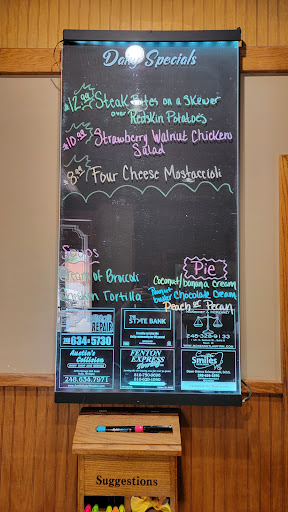 Daily Specials
$12.99 Steak Bites on a skewer
over Redskin Potatoes
$10.99 Strawberry Walnut Chicken
Salad
$8.99 Four Cheese Mostaccioli
Soups
Cream of Broccoli
Chicken Tortilla
Pie
Coconut/banana cream
Peanut butter Chocolate Cream
Peach or Pecan
REPAIR
634-5730
Austin's
Collision
248.634.7971
STATE BANK
FENTON
EXPRESS
810-750-9696
248-328-9133
Smiles
Suggestions